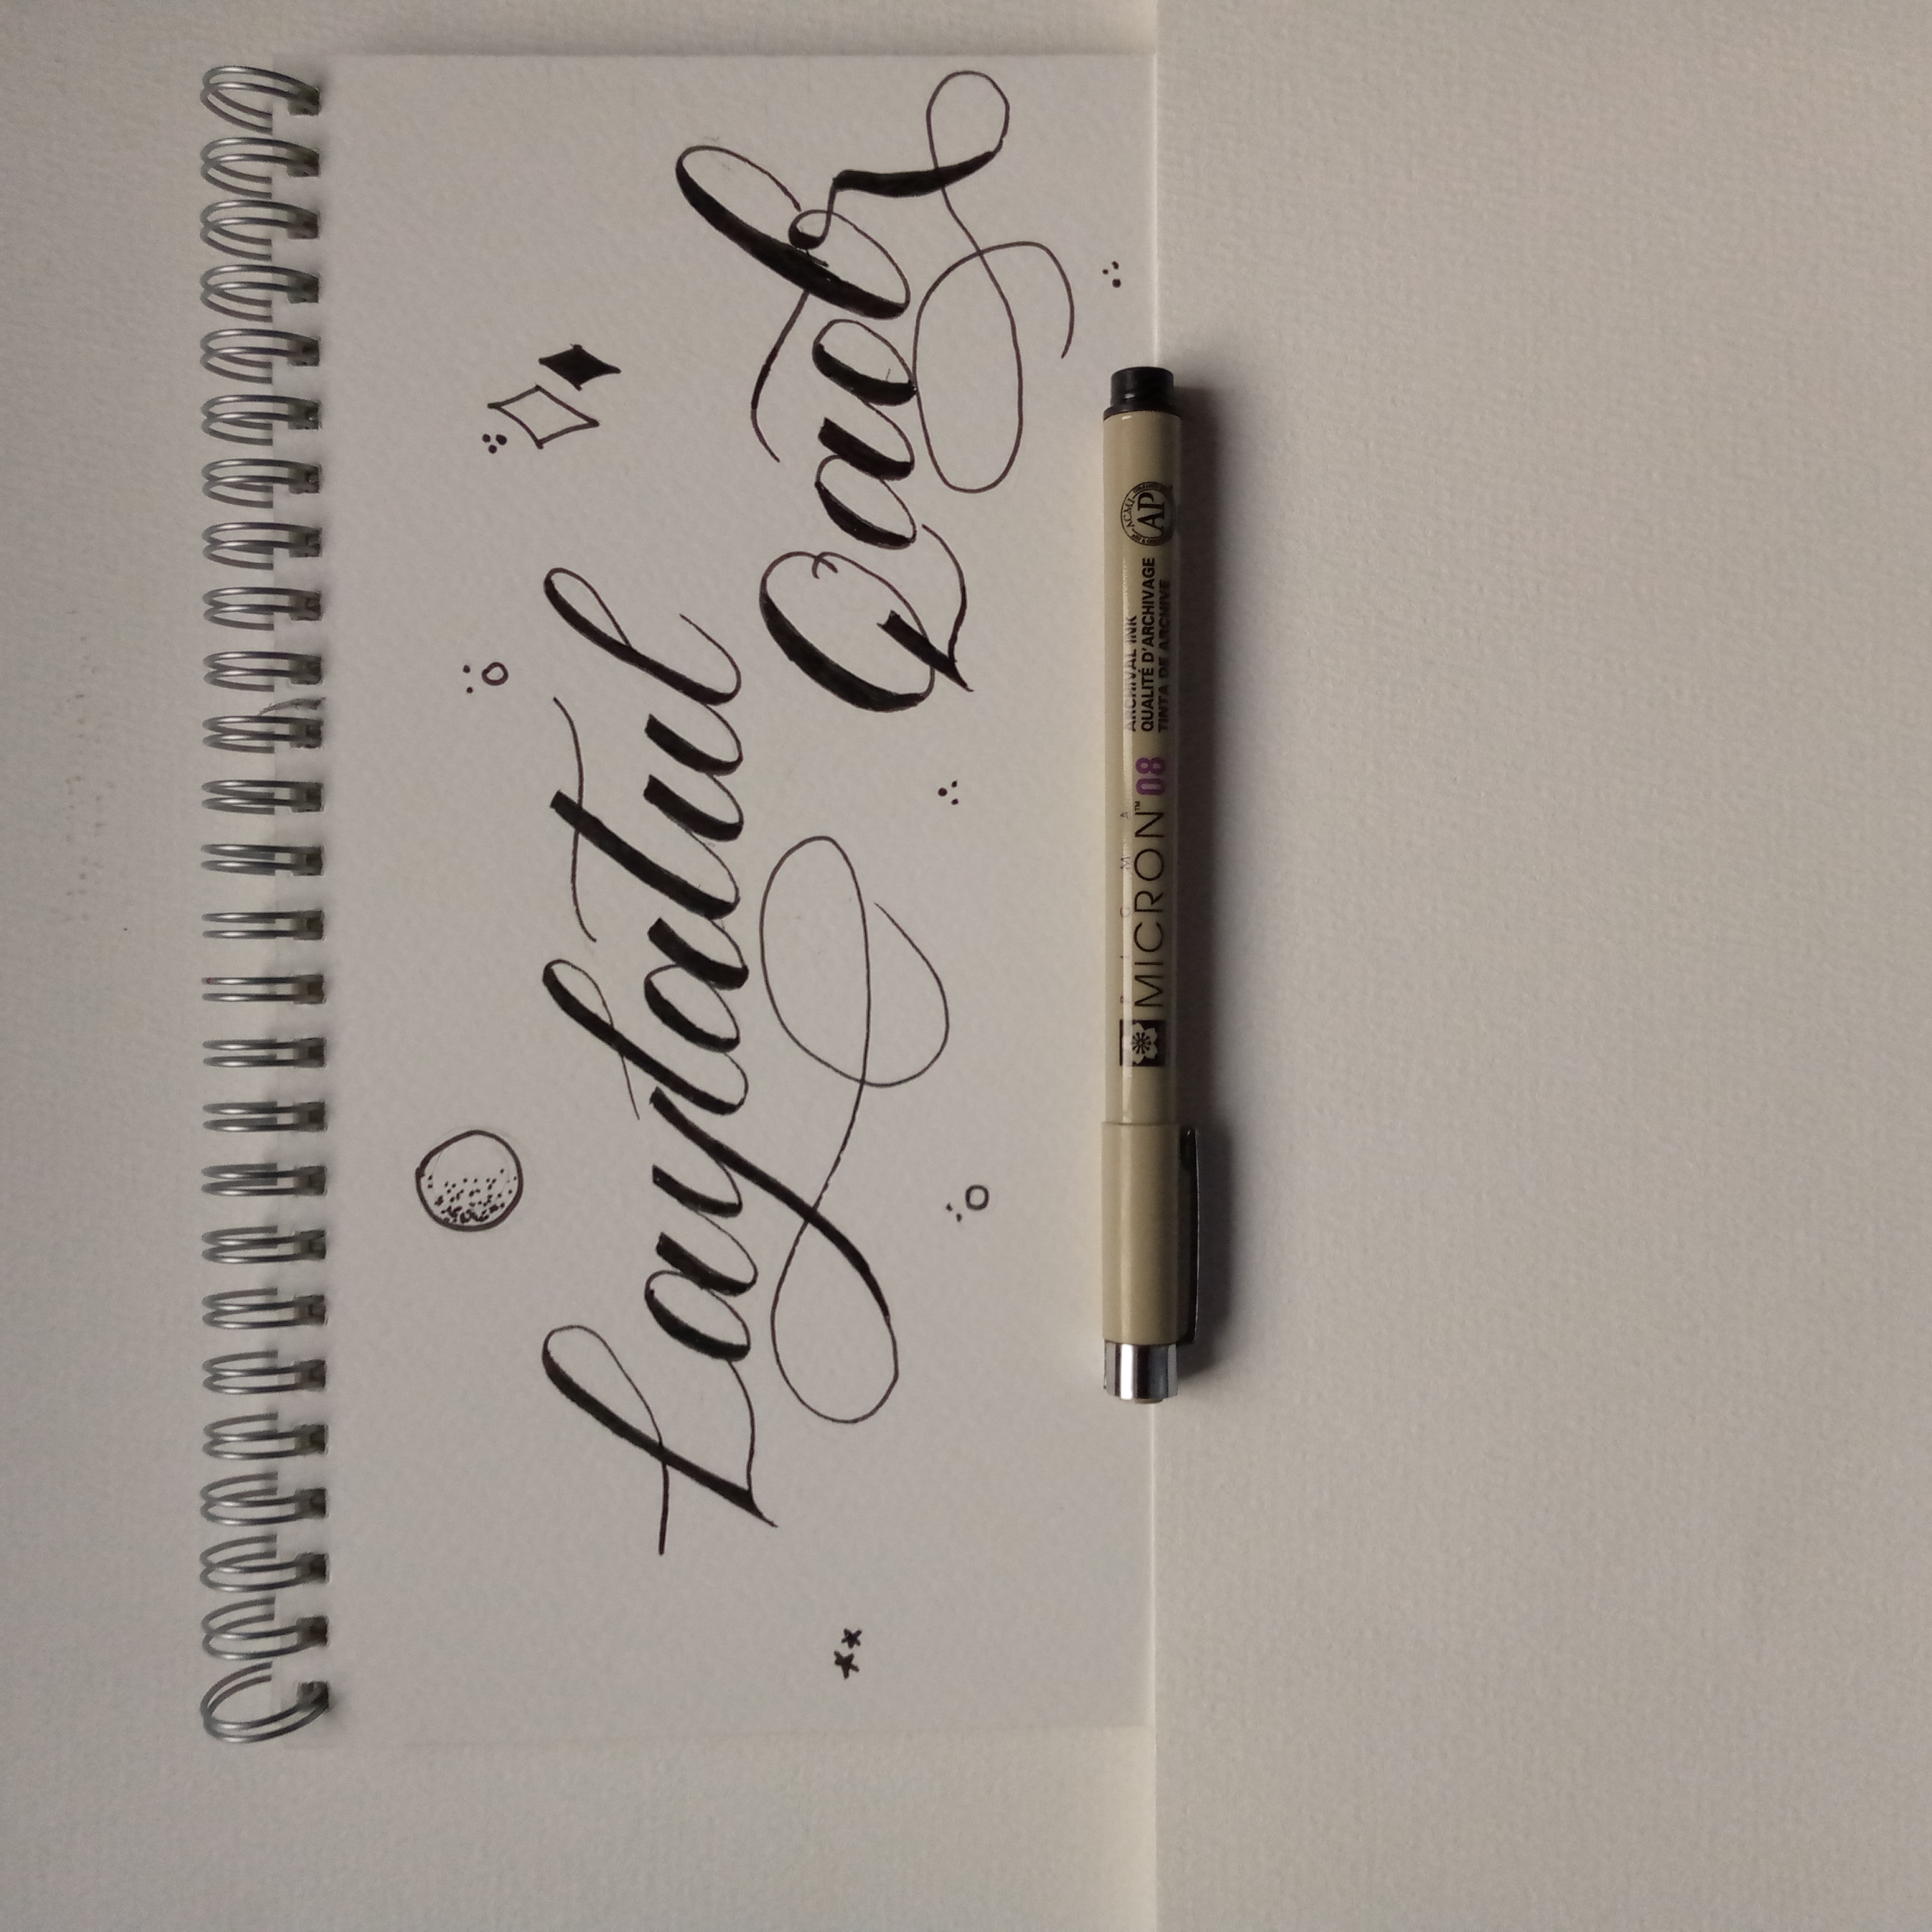 Laylatul
Qadr
PIGMA
MICRON™ 08
ARCHIVAL INK
QUALITÉ D'ARCHIVAGE
TINTA DE ARCHIVE
ACMI
AP